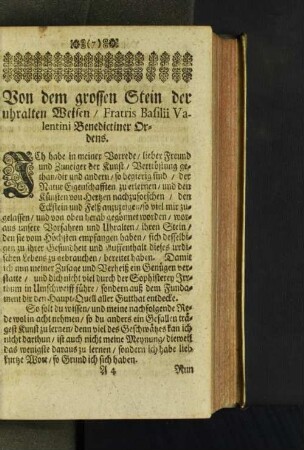 (7)
Von dem grossen Stein der
uhralten Weisen / Fratris Basilii Va-
lentini Benedictiner Or-
dens.
ICh habe in meiner Vorrede / lieber Freund
und Zuneiger der Kunst / Vertröstung ge-
than / dir und andern / so begierig sind / der
Natur Eigenschafften zu erlernen / und den
Künsten von Hertzen nachzuforschen / den
Eckstein und Felß anzuzeige / so viel mir zu-
gelassen / und von oben herab gegönnet worden / wor-
aus unsere Vorfahren und Uhralten / ihren Stein /
den sie vom Höchsten empfangen haben / sich desselbi-
gen zu ihrer Gesundheit und Auffenthalt dieses irrdi-
schen Lebens zu gebrauchen / bereitet haben. Damit
ich nun meiner Zusage und Verheiß ein Genügen ver-
statte / und dich nicht viel durch der Sophisterey Irr-
thum in Umschweiff führe / sondern auß dem Funda-
ment dir den Haupt-Quell aller Gutthat entdecke.
So solt du wissen / und meine nachfolgende Re-
de wol in acht nehmen / so du anders ein Gefallen trä-
gest Kunst zu lernen / denn viel des Geschwätzes kan ich
nicht darthun / ist auch nicht meine Meynung / dieweil
das wenigste daraus zu lernen / sondern ich habe lieb
kurtze Wort / so Grund ich sich haben.
A 4 Nun